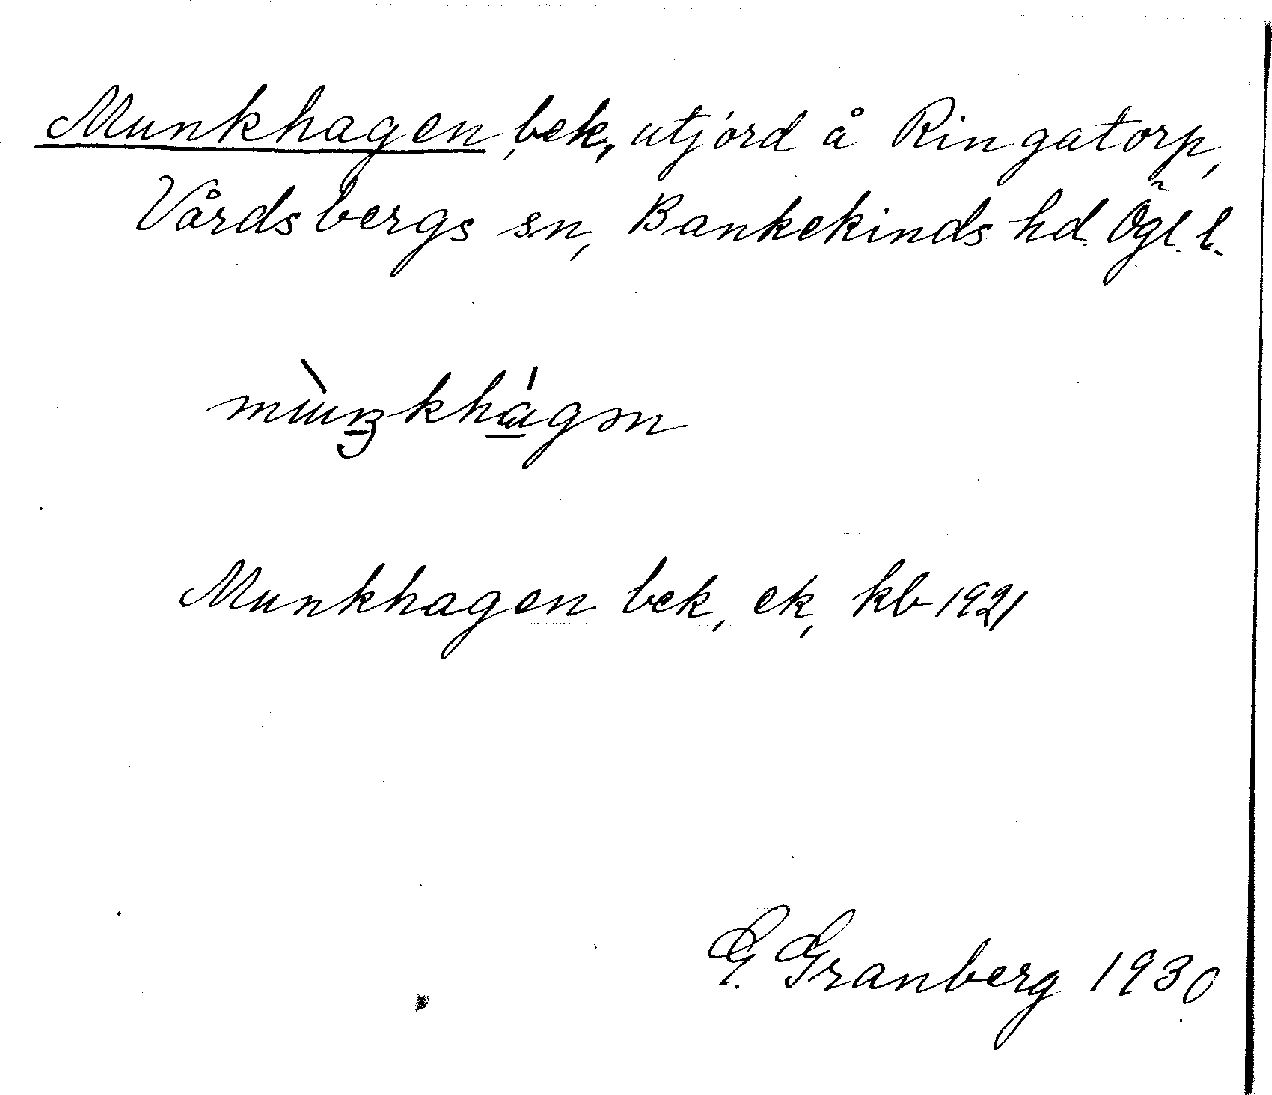 Munkhagen bek, utjord å Ringatorp,
Vårdsbergs sn, Bankekinds hd. Ögl. l.
mùŋkhágən
Munkhagen bek, ek, kb 1921
G. Granberg 1930